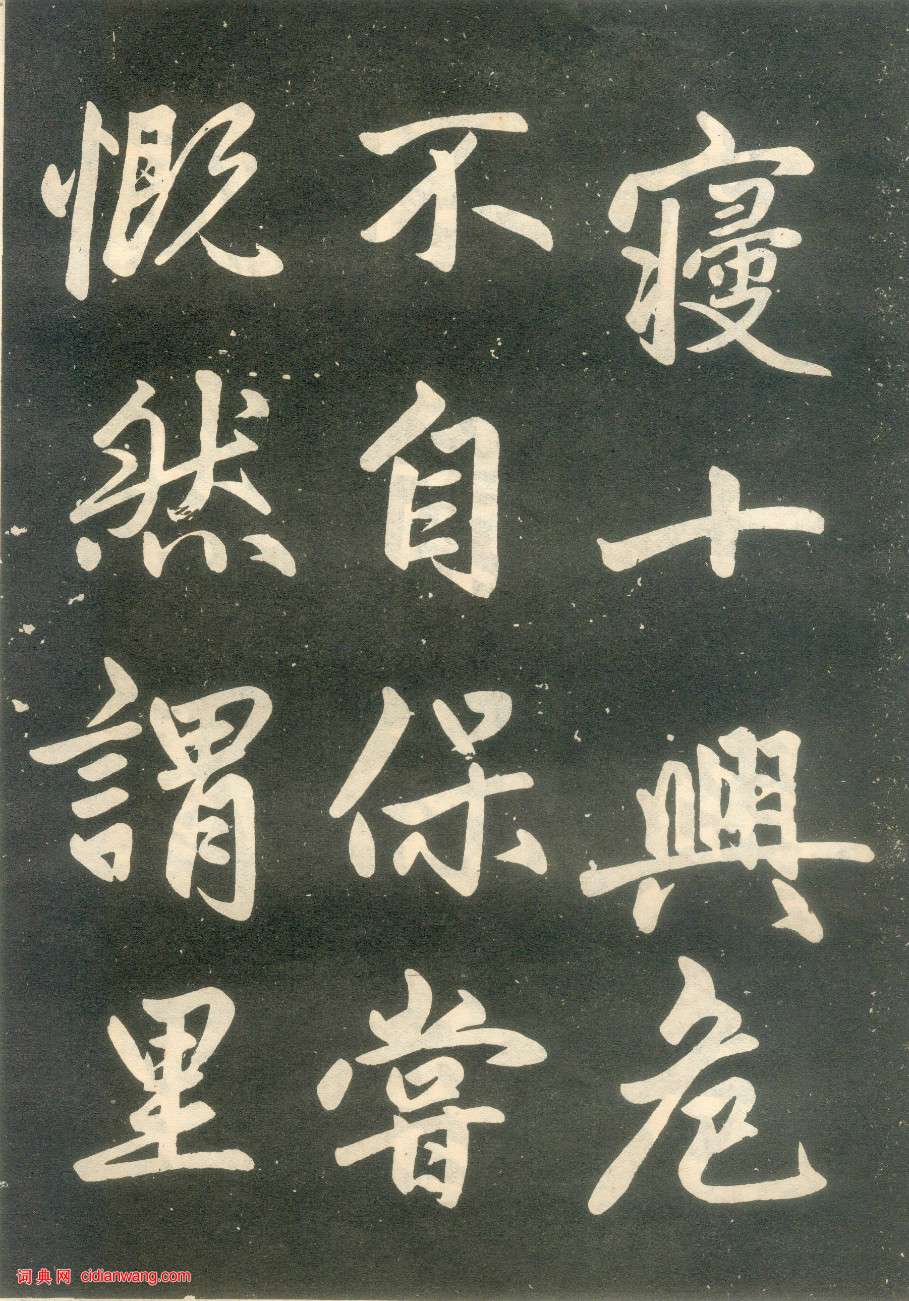 寢十興危
不自保嘗
慨然謂里
词典网 cidianwang.com